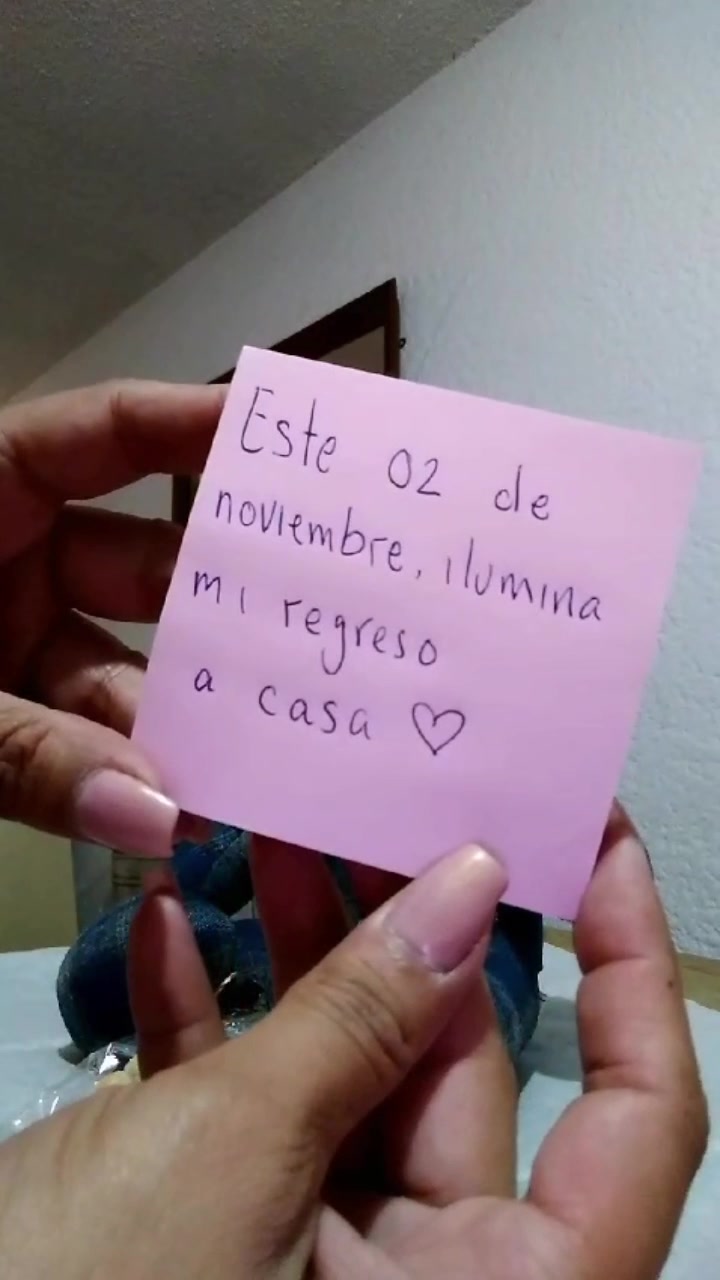 Este 02 de
noviembre, ilumina
mi regreso
a casa ♡